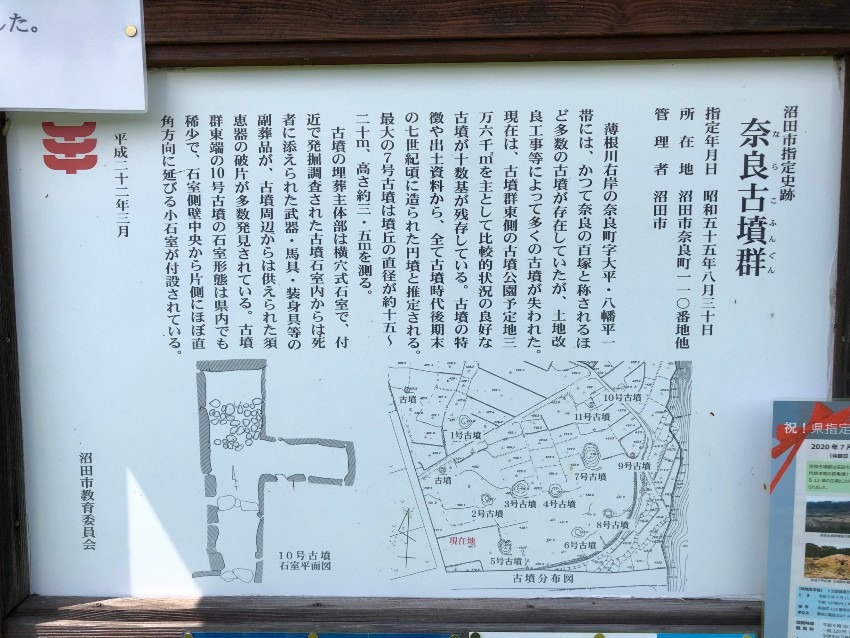 した。
沼田市指定史跡
奈良古墳群
ならこふんぐん
指定年月日 昭和五十五年八月三十日
所在地 沼田市奈良町一一〇番地他
管理者 沼田市
薄根川右岸の奈良町字大平・八幡平一
帯には、かつて奈良の百塚と称されるほ
ど多数の古墳が存在していたが、土地改
良工事等によって多くの古墳が失われた。
現在は、古墳群東側の古墳公園予定地三
万六千㎡を主として比較的状況の良好な
古墳が十数基が残存している。古墳の特
徴や出土資料から、全て古墳時代後期末
の七世紀頃に造られた円墳と推定される。
最大の7号古墳は墳丘の直径が約十五～
二十m、高さ約三・五mを測る。
古墳の埋葬主体部は横穴式石室で、付
近で発掘調査された古墳石室内からは死
者に添えられた武器・馬具・装身具等の
副葬品が、古墳周辺からは供えられた須
恵器の破片が多数発見されている。古墳
群東端の10号古墳の石室形態は県内でも
稀少で、石室側壁中央から片側にほぼ直
角方向に延びる小石室が付設されている。
平成二十二年三月
沼田市教育委員会
10号古墳
石室平面図
古墳
10号古墳
11号古墳
1号古墳
9号古墳
古墳
7号古墳
3号古墳
4号古墳
2号古墳
8号古墳
現在地
6号古墳
5号古墳
古墳分布図
祝！県指定
2020年7月